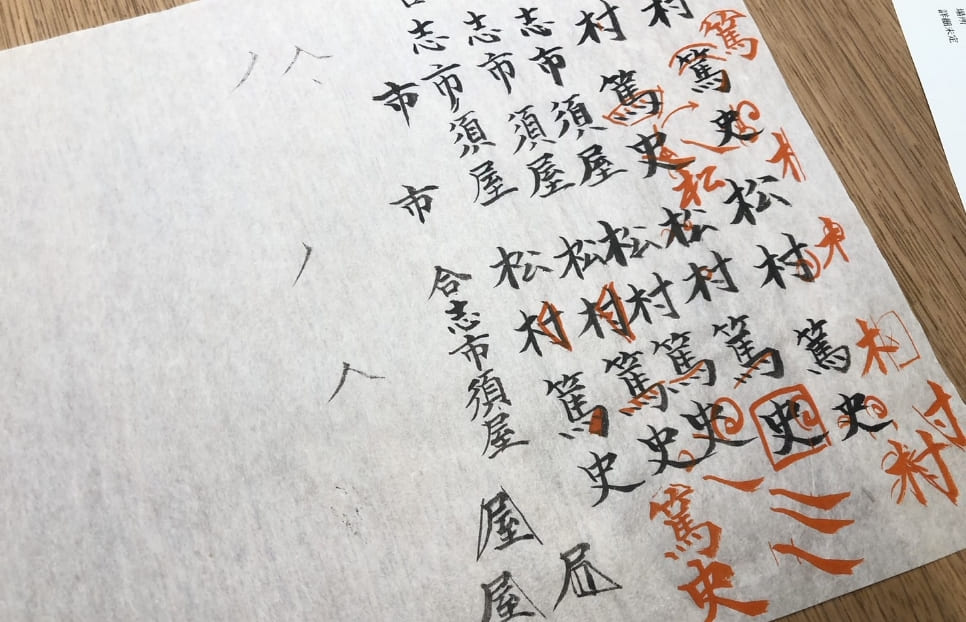 篤
村
村篤史松村篤史
村篤史松村篤史
松
篤史
志市須屋松村篤史
志市須屋松村篤史
志市須屋松村篤史
合志市須屋
屋
屋
市
市